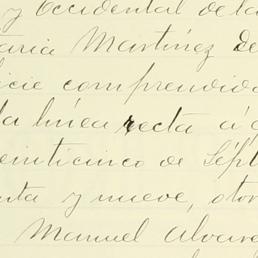 y Occidental de la
aria Martínez de
icie comprendida
la línea recta á q
einticinco de Sépt
nta y nueve, otor
Manuel Alvare